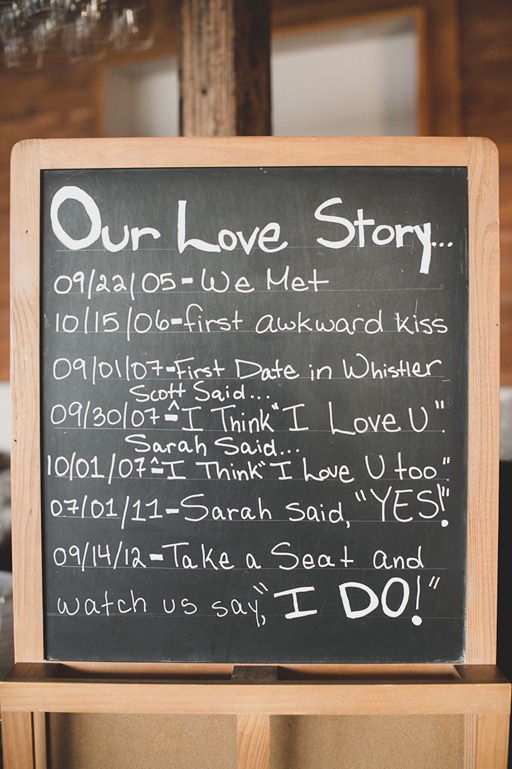 Our Love Story...
09/22/05-We Met
10/15/06-first awkward kiss
09/01/07-First Date in Whistler
Scott Said...
09/30/07-^I Think "I Love U".
Sarah Said...
10/01/07-^I Think "I Love U too".
07/01/11-Sarah Said, "YES!"
09/14/12-Take a Seat and
watch us say, "I DO!"